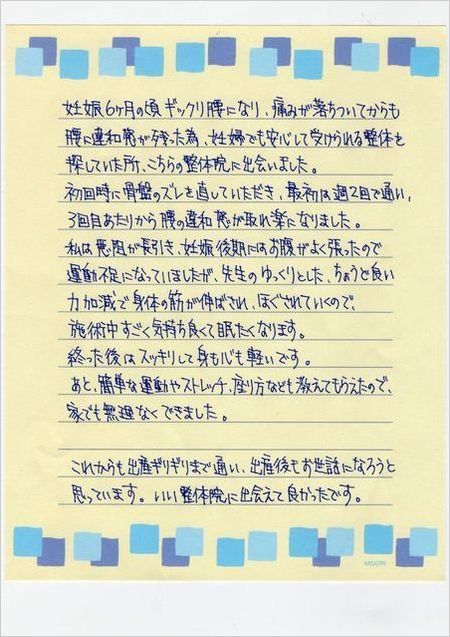 妊娠6ヶ月の頃ギックリ腰になり、痛みが落ちついてからも
腰に違和感が残った為、妊婦でも安心して受けられる整体を
探していた所、こちらの整体院に出会いました。
初回時に骨盤のズレを直していただき、最初は週2回で通い、
3回目あたりから腰の違和感が取れ楽になりました。
私は悪阻が長引き、妊娠後期にはお腹がよく張ったので
運動不足になっていましたが、先生のゆっくりとした、ちょうど良い
力加減で身体の筋が伸ばされ、ほぐされていくので、
施術中すごく気持ち良くて眠たくなります。
終った後はスッキリして身も心も軽いです。
あと、簡単な運動やストレッチ、座り方なども教えてもらえたので、
家でも無理なくできました。
これからも出産ギリギリまで通い、出産後もお世話になろうと
思っています。いい整体院に出会えて良かったです。
MIDORI